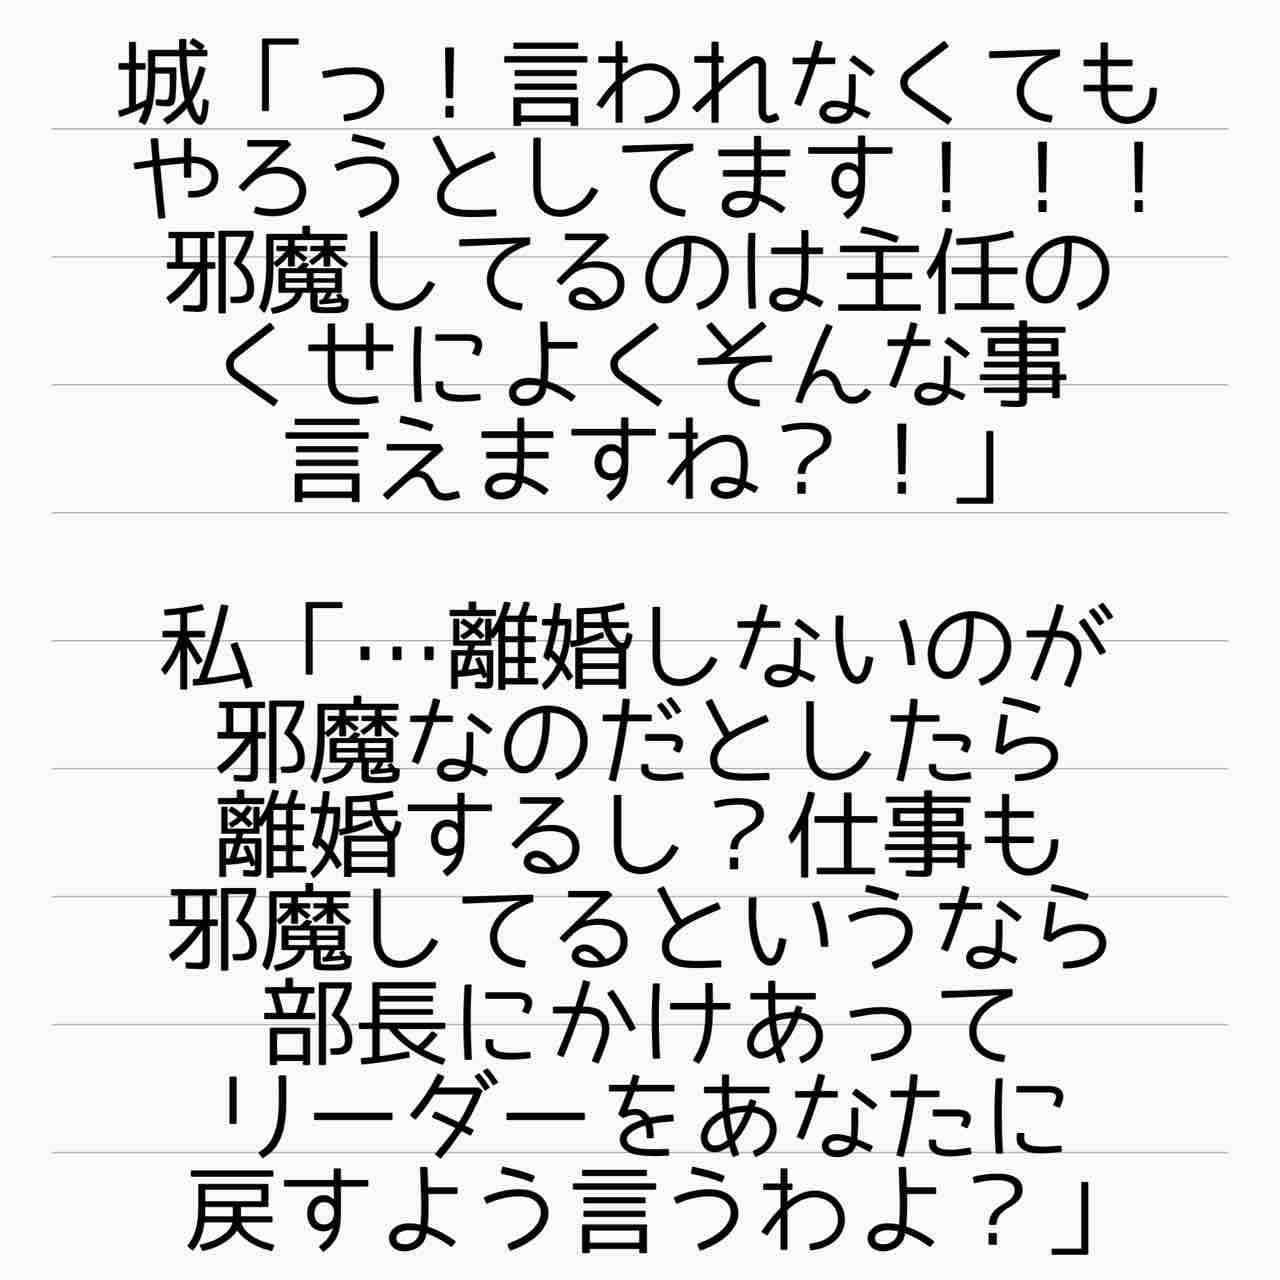 城「っ！言われなくても
やろうとしてます！！！
邪魔してるのは主任の
くせによくそんな事
言えますね？！」
私「…離婚しないのが
邪魔なのだとしたら
離婚するし？仕事も
邪魔してるというなら
部長にかけあって
リーダーをあなたに
戻すよう言うわよ？」